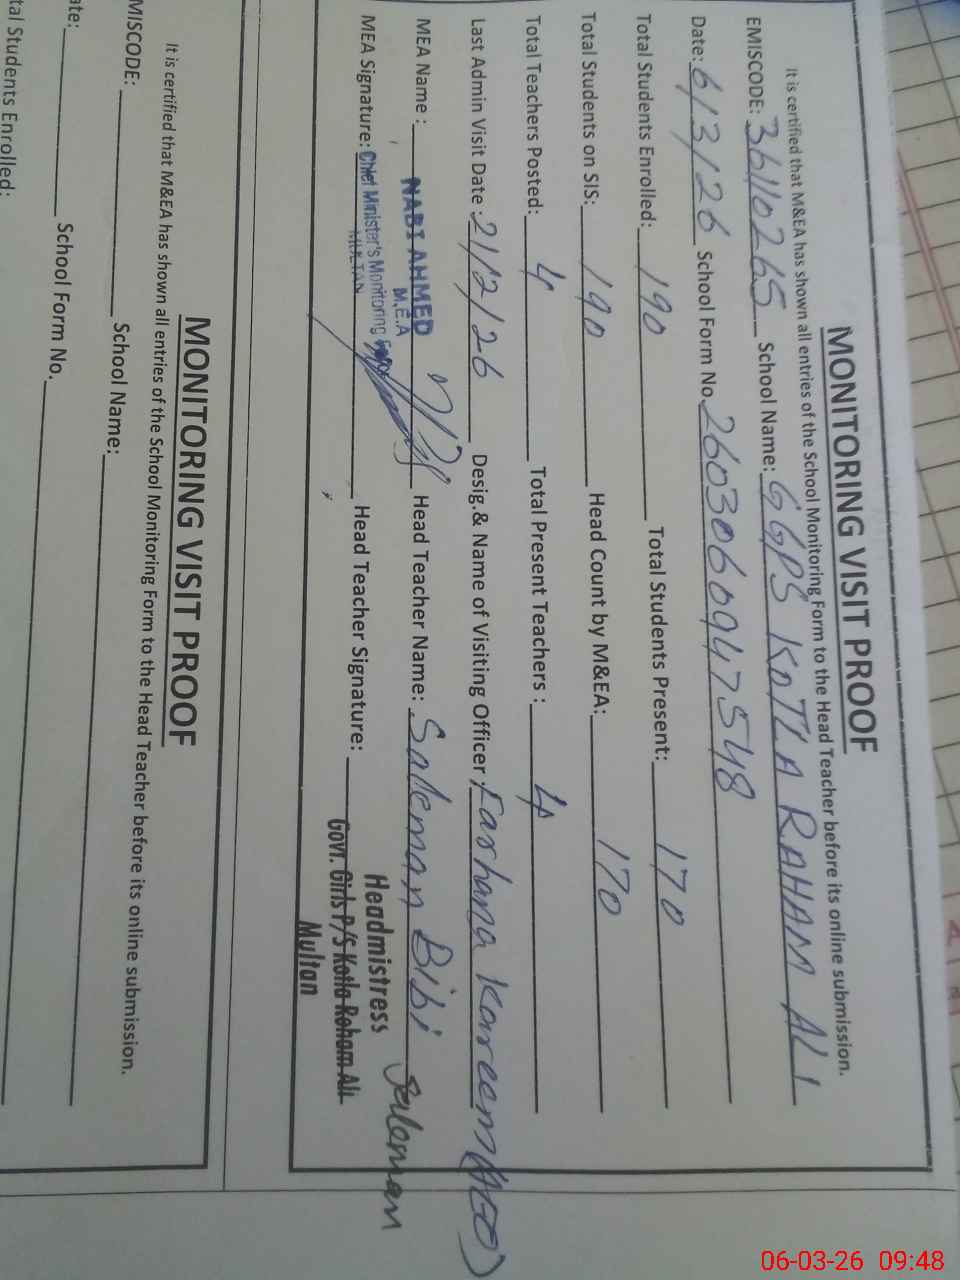 MONITORING VISIT PROOF
It is certified that M&EA has shown all entries of the School Monitoring Form to the Head Teacher before its online submission.
EMISCODE: 36110265 School Name: GGPS KOTLA RAHAM ALI
Date: 6/3/26 School Form No. 2603060947548
Total Students Enrolled: 190 Total Students Present: 170
Total Students on SIS: 190 Head Count by M&EA: 170
Total Teachers Posted: 4 Total Present Teachers : 4
Last Admin Visit Date : 21/2/26 Desig.& Name of Visiting Officer : Farhana Kareem (AEO)
MEA Name : NABI AHMED Head Teacher Name: Saleman Bibi
M.E.A
MEA Signature: Chief Minister's Monitoring Force Head Teacher Signature: Saleman
MULTAN
Headmistress
Govt. Girls P/S Kotla Raham Ali
Multan
MONITORING VISIT PROOF
It is certified that M&EA has shown all entries of the School Monitoring Form to the Head Teacher before its online submission.
MISCODE: School Name:
ate: School Form No.
tal Students Enrolled:
06-03-26 09:48